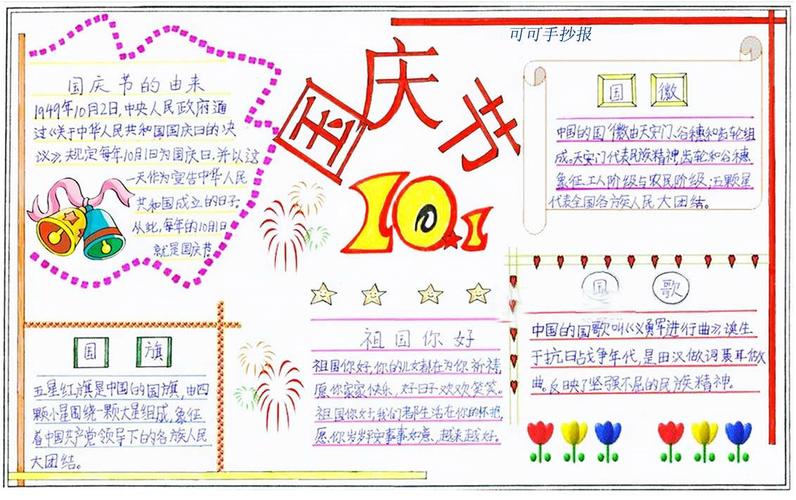 可可手抄报
国庆节
10.1
国庆节的由来
1949年10月2日,中央人民政府通
过《关于中华人民共和国国庆日的决
议》,规定每年10月1日为国庆日,并以这
一天作为宣告中华人民
共和国成立的日子.
从此,每年的10月1日
就是国庆节
国徽
中国的国徽由天安门、谷穗和齿轮组
成。天安门代表民族精神,齿轮和谷穗
象征工人阶级与农民阶级;五颗星
代表全国各族人民大团结。
国旗
五星红旗是中国的国旗,由四
颗小星围绕一颗大星组成,象征
着中国共产党领导下的各族人民
大团结。
祖国你好
祖国你好,你的儿女都在为你祈祷,
愿你家家快乐,好日子欢欢笑笑。
祖国你好,我们都生活在你的怀抱,
愿你岁岁平安事事如意,越来越好。
国歌
中国的国歌叫《义勇军进行曲》诞生
于抗日战争年代,是田汉做词聂耳做
曲,反映了坚强不屈的民族精神。